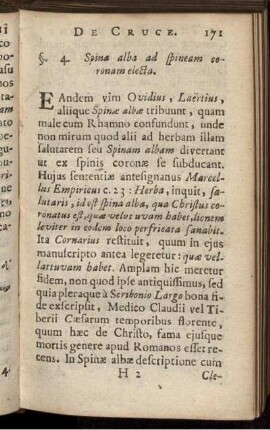 DE CRUCE. 171
§. 4. Spinæ alba ad spineam co-
ronam eiecta.
EAndem vim Ovidius, Laërtius,
aliique Spinæ albæ tribuunt, quam
male cum Rhamno confundunt, unde
non mirum quod alii ad herbam illam
salutarem seu Spinam albam divertant
ut ex spinis coronæ se subducant.
Hujus sententiæ antesignanus Marcel-
lus Empiricus c. 23: Herba, inquit, sa-
lutaris, id est spina alba, qua Christus co-
ronatus est, quæ velut uvam habet, lienem
leviter in eodem loco perfricata sanabit.
Ita Cornarius restituit, quum in ejus
manuscripto antea legeretur: quæ vel-
lattuvam habet. Amplam hic meretur
fidem, non quod ipse antiquissimus, sed
quia pleraque à Scribonio Largo bona fi-
de exscripsit, Medico Claudii vel Ti-
berii Cæsarum temporibus florente,
quum hæc de Christo, fama ejusque
mortis genere apud Romanos esset re-
cens. In Spinæ albæ descriptione cum
H 2 Cle-